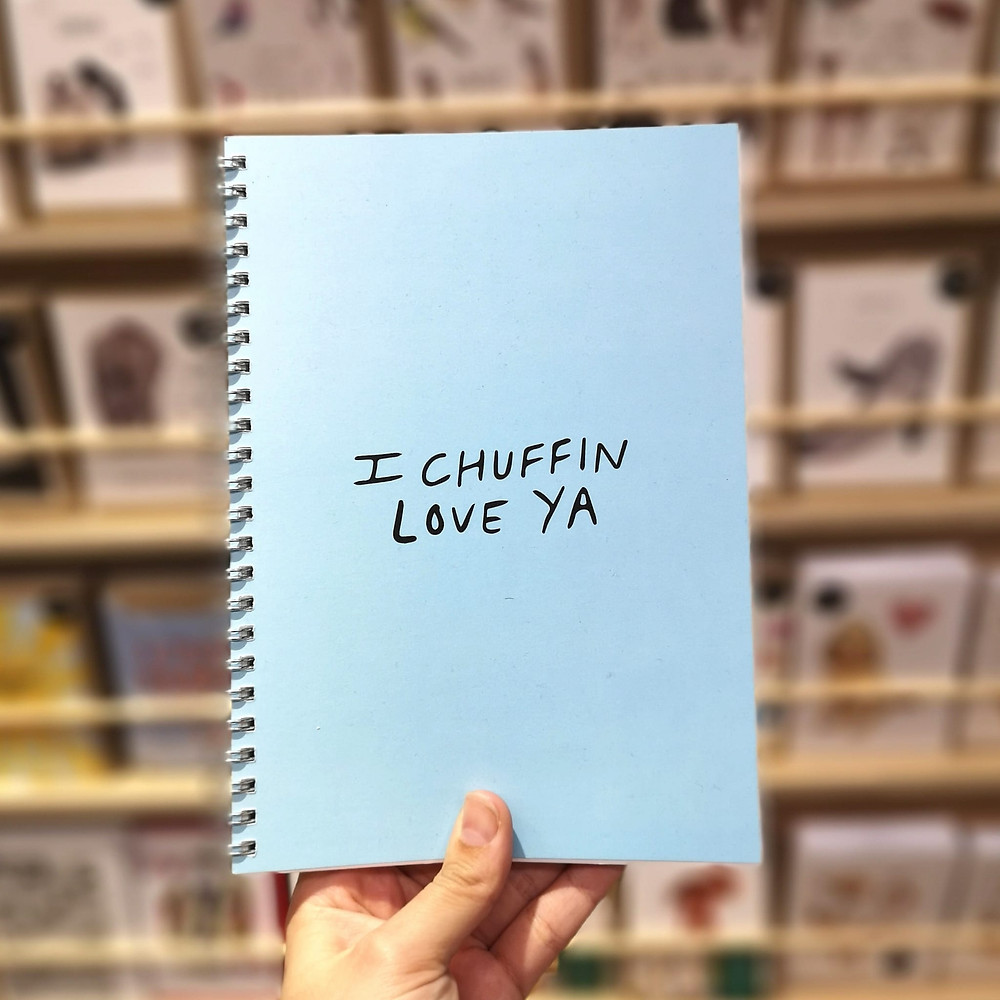 I CHUFFIN
LOVE YA